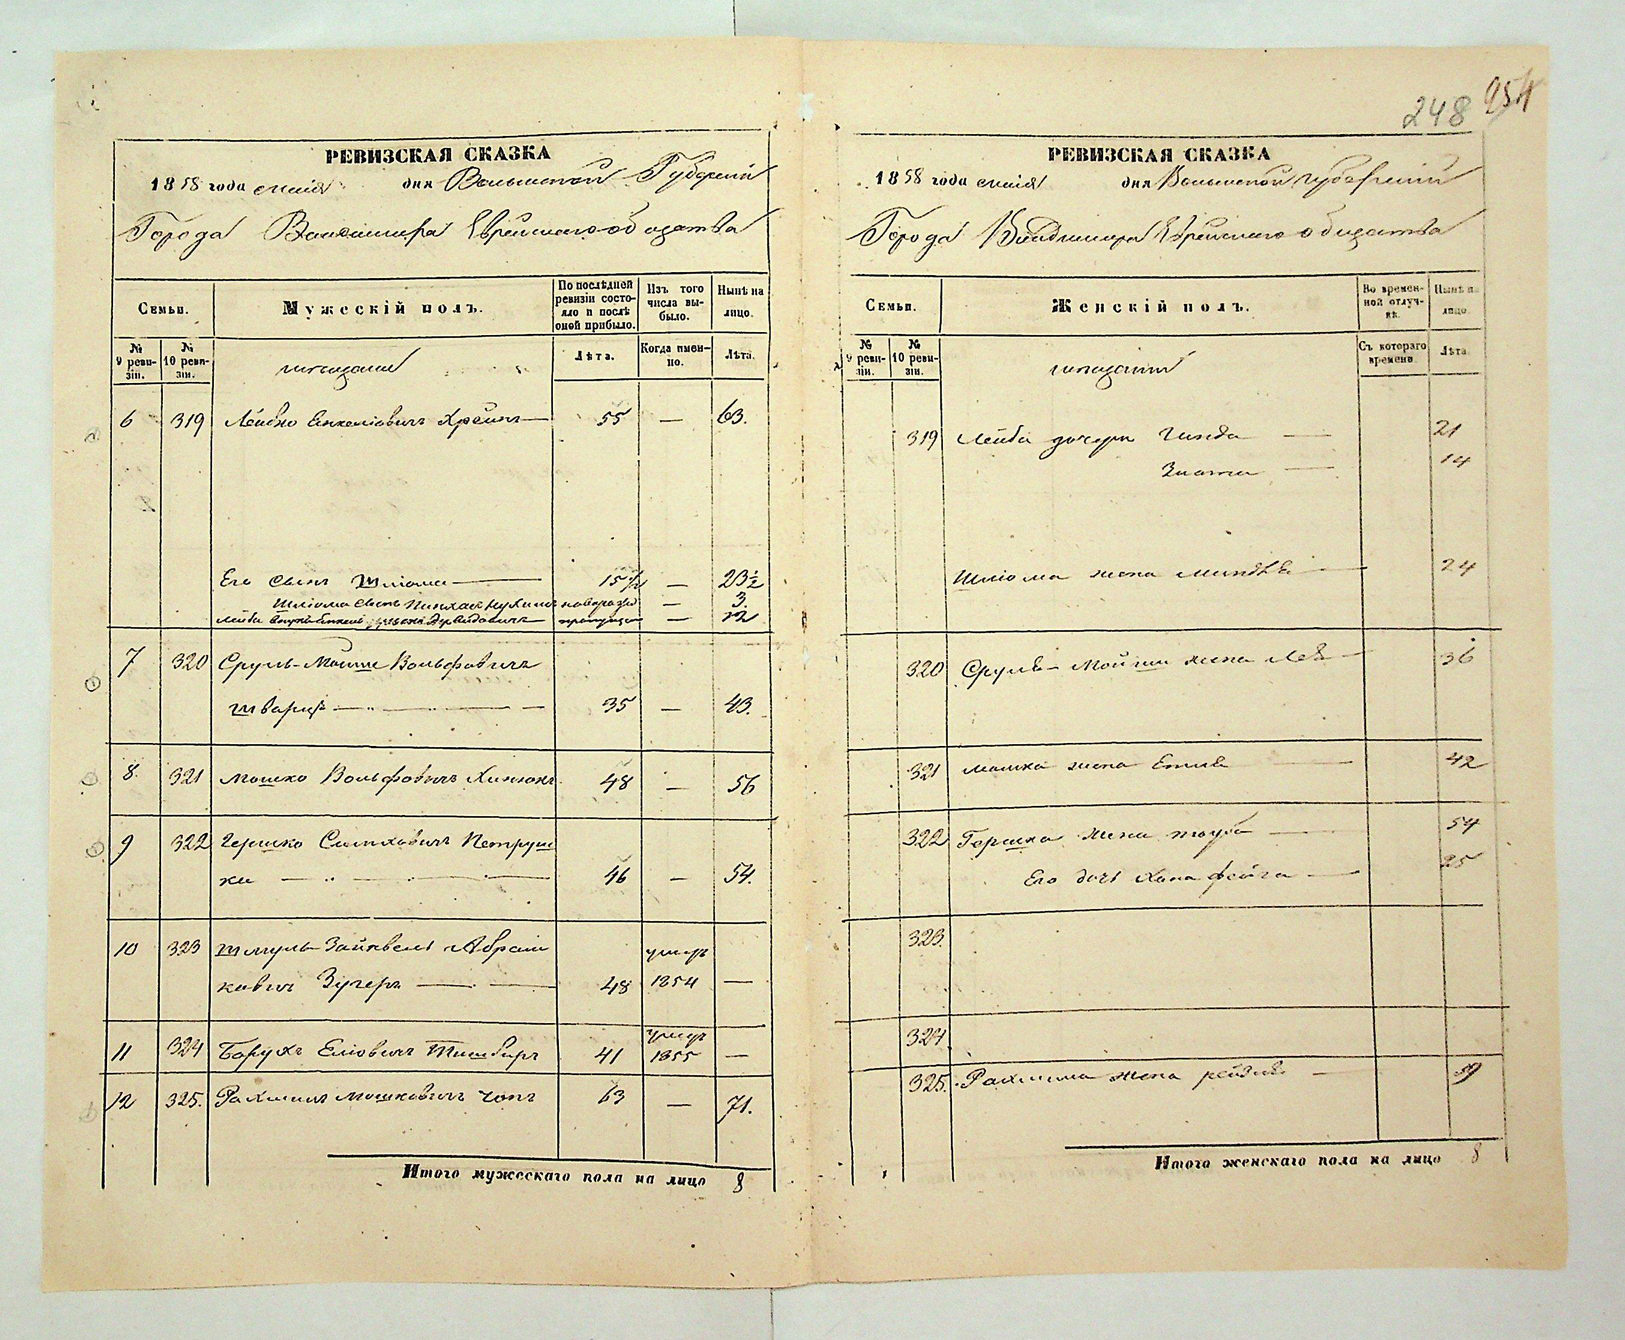 248 254
РЕВИЗСКАЯ СКАЗКА
1858 года мaiя дня Волынской Губернiи
Города Владимира Еврейскаго общества
Семьи.
Мужескій полъ.
По послѣдней ревизіи состояло и послѣ оной прибыло.
Изъ того числа выбыло.
Нынѣ на лицо.
№ 9 ревизіи.
№ 10 ревизіи.
мѣщане
Лѣта.
Когда именно.
Лѣта.
6 319 Лейбко Янкеліовичъ Крейнъ 55 — 63.
Его сынъ Шліома 15 1/2 — 23 1/2
Шліома сынъ Пинхас Нухимъ новорож — 3
Лейби внукъ — 12
7 320 Сруль-Мойше Вольфовичъ
Шварцъ 35 — 43.
8. 321 Мошко Вольфовичъ 48 — 56
9 322 Гершко Симховичъ Петруш
ки 46 — 54.
10 323 Шмуль Зайнвель Абрам
ковичъ Зугеръ 48 умеръ 1854 —
11 324 Борухъ Еліовичъ 41 умеръ 1855 —
12 325. Рахмилъ Мошковичъ Чопъ 63 — 71.
Итого мужескаго пола на лицо 8
РЕВИЗСКАЯ СКАЗКА
1858 года мaiя дня Волынской губернiи
Города Владимира Еврейскаго общества
Семьи.
Женскій полъ.
Во временной отлучкѣ.
Нынѣ на лицо.
№ 9 ревизіи.
№ 10 ревизіи.
мѣщане
Съ котораго времени
Лѣта
319 Лейба дочери Гинда 21
Злата 14
Шліома жена Миндля 24
320 Сруля-Мойши жена Лея 36
321 Мошка жена Етля 42
322 Гершка жена Тауба 54
Его дочь Хана Фейга 25
323.
324.
325. Рахмила жена Рейзля
Итого женскаго пола на лицо 8